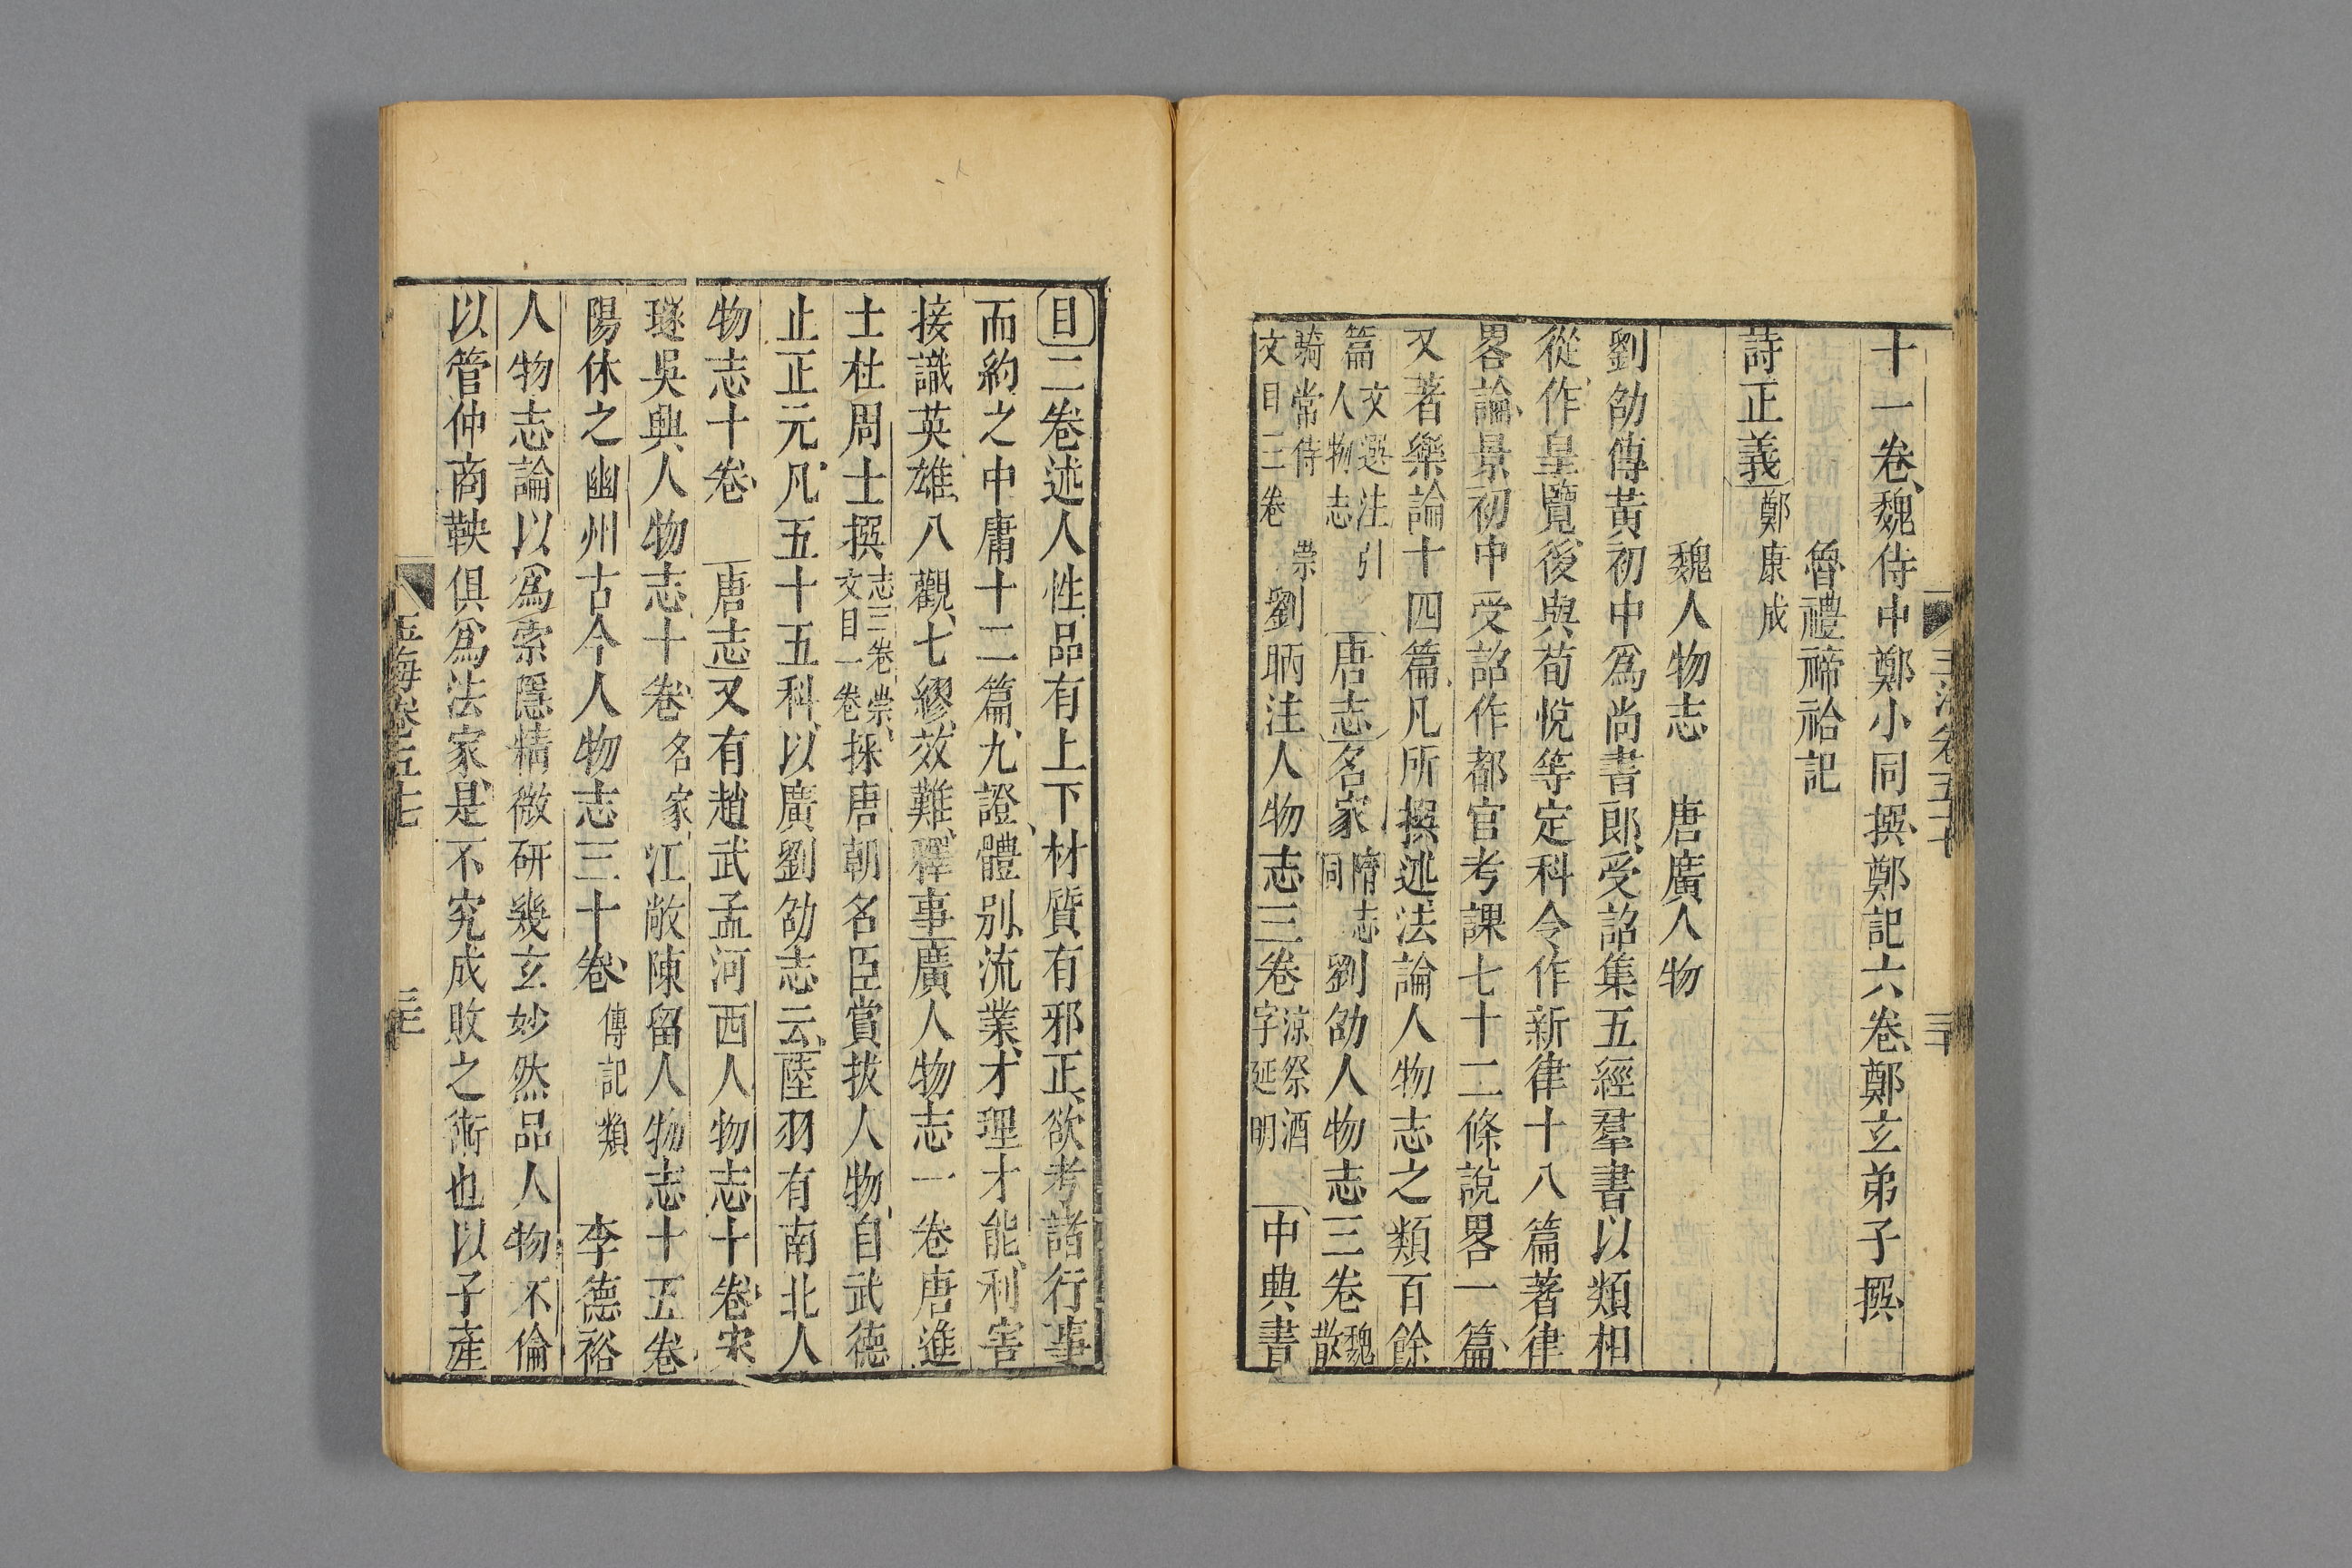 十一卷魏侍中鄭小同撰鄭記六卷鄭玄弟子撰
魯禮禘祫記
詩正義鄭康成
魏人物志 唐廣人物
劉劭傳黃初中爲尚書郎受詔集五經羣書以類相
從作皇覽後與荀悅等定科令作新律十八篇著律
畧論景初中受詔作都官考課七十二條說畧一篇
又著樂論十四篇凡所撰述法論人物志之類百餘
篇文選注引人物志 唐志名家隋志同劉劭人物志三卷魏散
騎常侍崇文目三卷劉昞注人物志三卷涼祭酒字延明 中興書
目二卷述人性品有上下材質有邪正欲考諸行事
而約之中庸十二篇九證體別流業才理才能利害
接識英雄八觀七繆效難釋事廣人物志一卷唐進
士杜周士撰志三卷崇文目一卷採唐朝名臣賞拔人物自武德
止正元凡五十五科以廣劉劭志云陸羽有南北人
物志十卷 唐志又有趙武孟河西人物志十卷宋
璲吳興人物志十卷名家江敞陳留人物志十五卷
陽休之幽州古今人物志三十卷傳記類 李德裕
人物志論以爲索隱精微研幾玄妙然品人物不倫
以管仲商鞅俱爲法家是不究成敗之術也以子產
玉海卷五十七